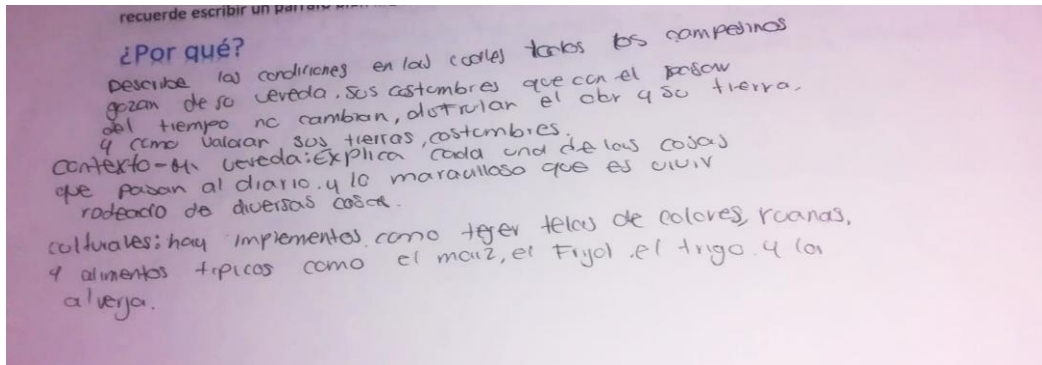 recuerde escribir un párrafo bien
¿Por qué?
Describe las condiciones en las cuales todos los campesinos
gozan de su vereda. sus costumbres que con el pasar
del tiempo no cambian, disfrutan el olor a su tierra.
y como valoran sus tierras, costumbres.
contexto-Mi vereda: Explica cada una de las cosas
que pasan al diario. y lo maravilloso que es vivir
rodeado de diversas cosas.
culturales: hay implementos como tejer telas de colores, ruanas,
y alimentos tipicos como el maiz, el Frijol .el trigo. y la
alverja.